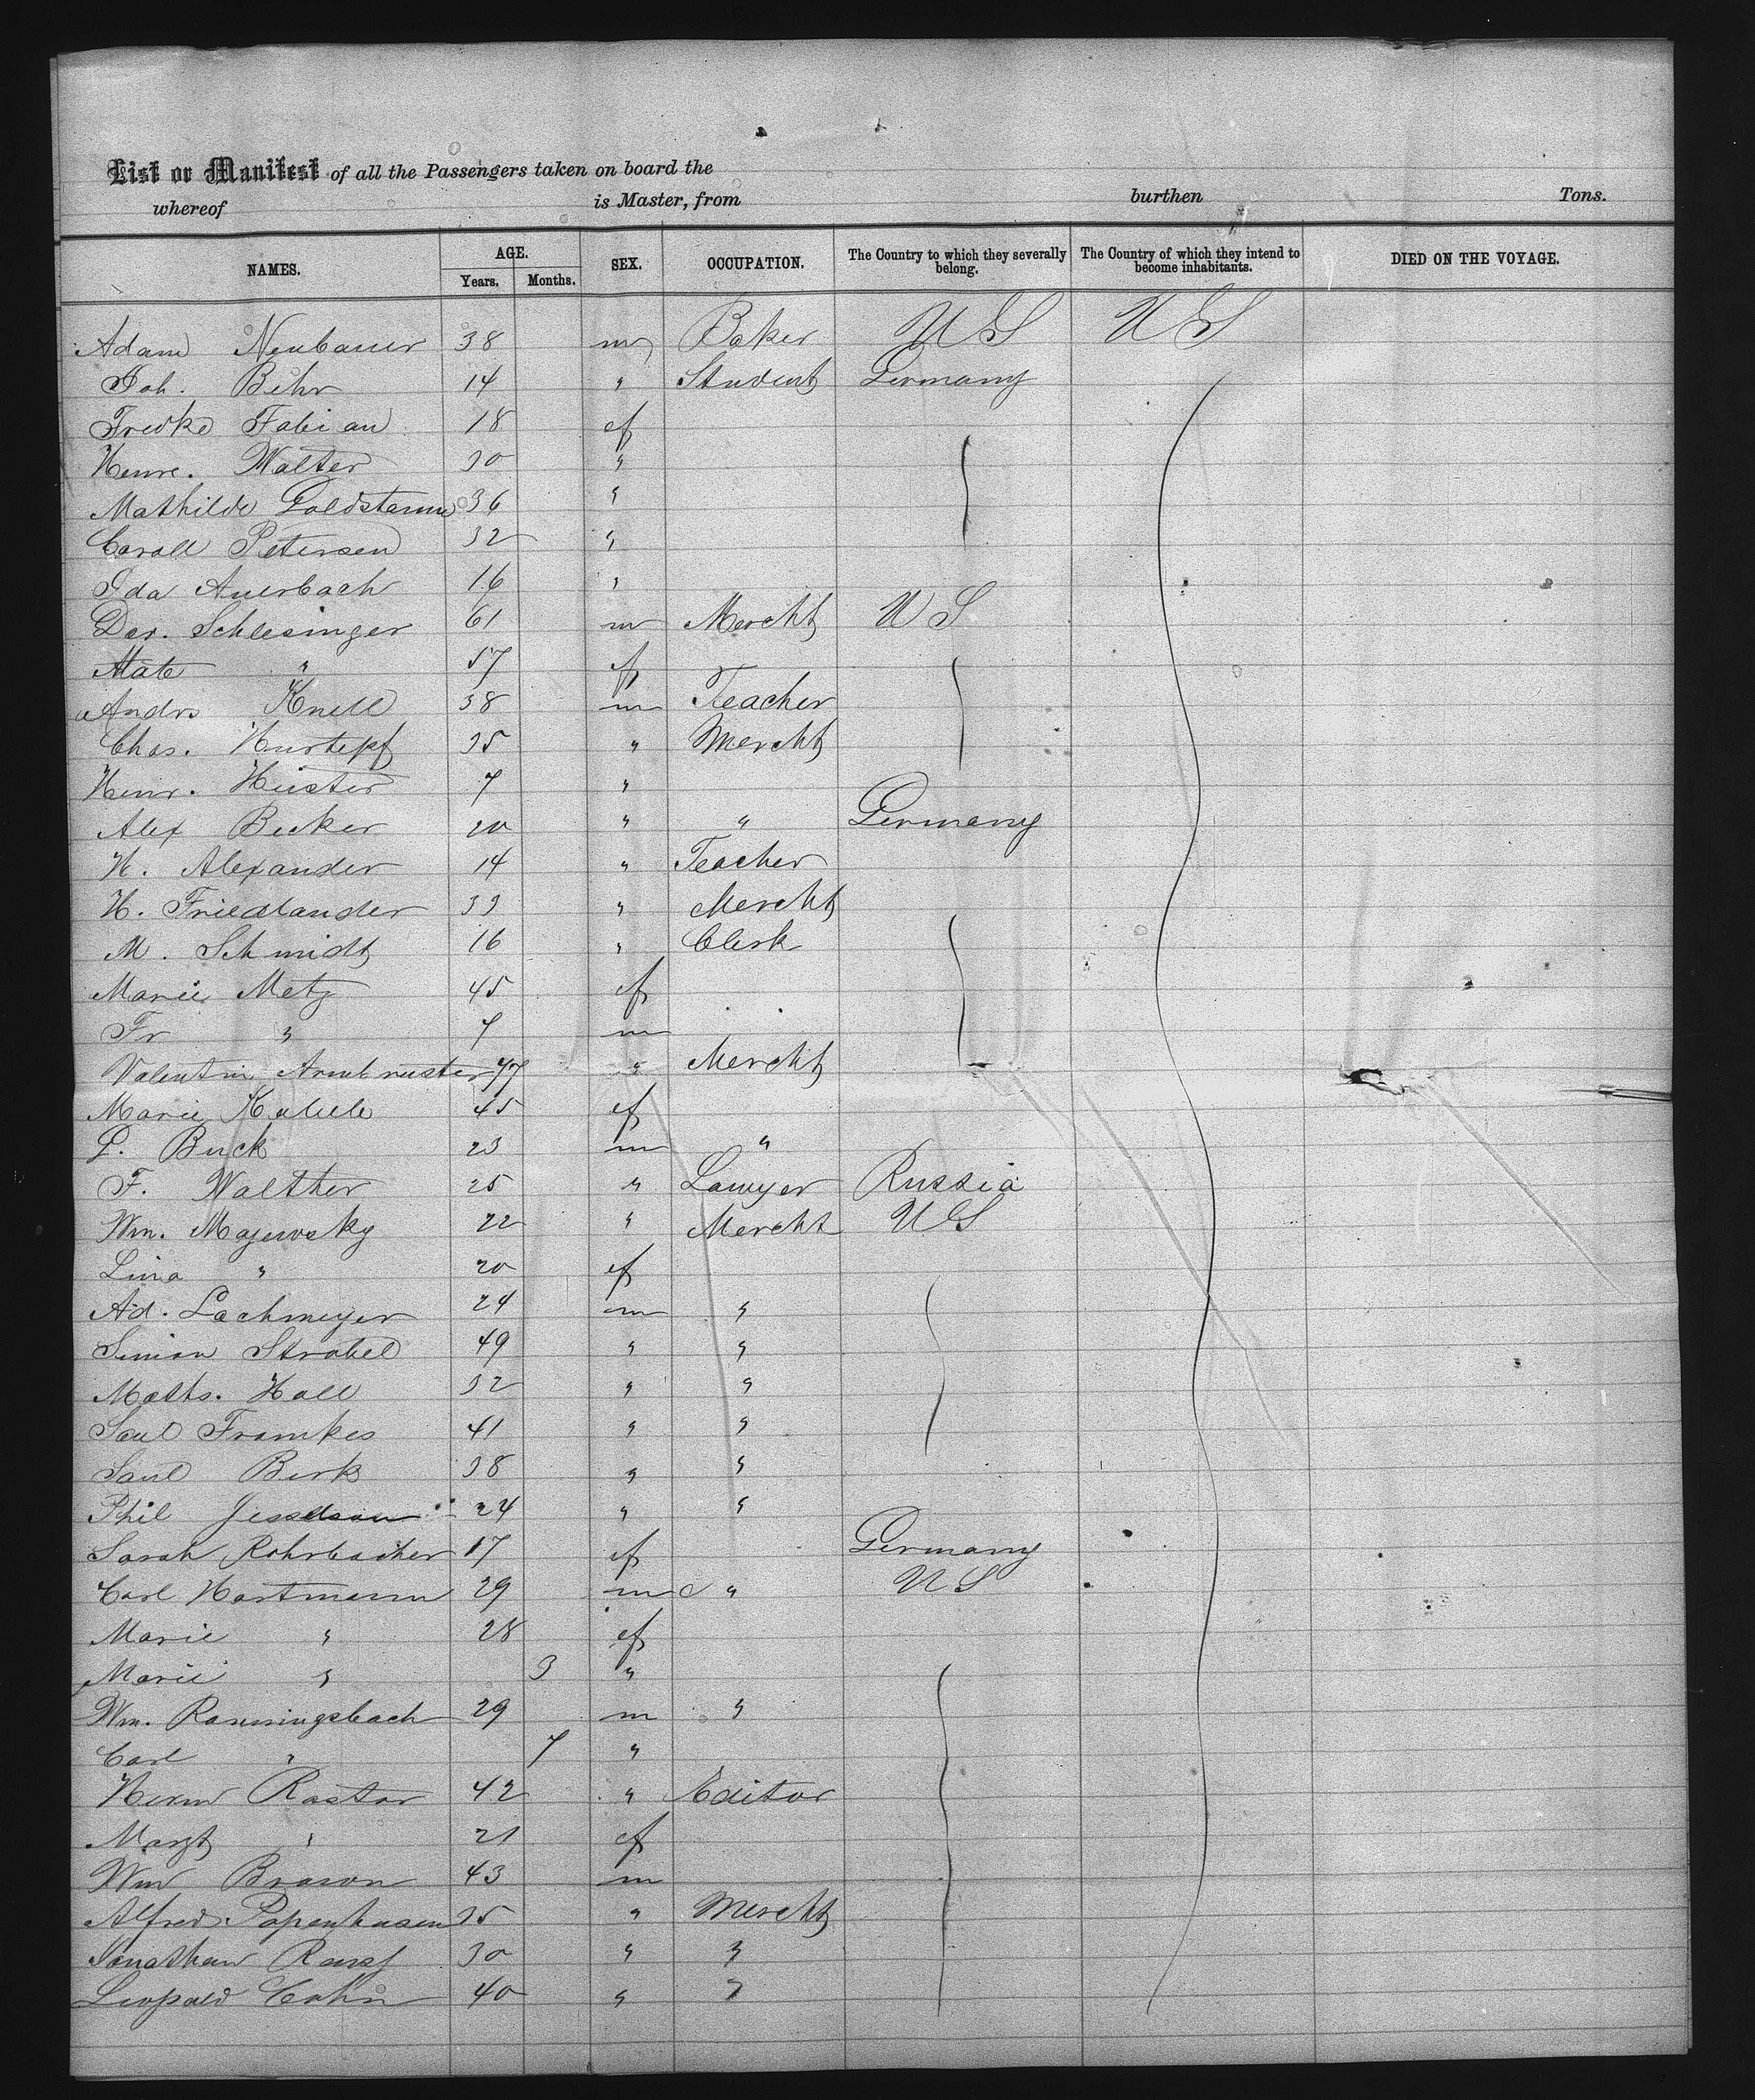 List or Manifest of all the Passengers taken on board the
whereof is Master, from burthen Tons.
NAMES. AGE. Years. Months. SEX. OCCUPATION. The Country to which they severally belong. The Country of which they intend to become inhabitants. DIED ON THE VOYAGE.
Adam Neubauer 38 m Baker US US
Joh. Behr 14 " Student Germany
Fredke Fabian 18 f
Henre. Walter 30 "
Mathilde 36 "
Caroll Petersen 32 "
Ida Auerbach 16 "
Dav. Schlesinger 61 m Mercht US
" 57 f
Andr Knell 38 m Teacher
Chas. 35 " Mercht
Heinr. 7 "
Alex Becker 20 " " Germany
H. Alexander 14 " Teacher
H. Friedlander 33 " Mercht
M. Schmidt 16 " Clerk
Marie Metz 45 f
Fr " 7 m
Valentin Armbruster 47 " Mercht
Marie 45 f
P. Buck 23 m "
F. Walther 25 " Lawyer Russia
Wm. Majewsky 22 " Mercht US
Lina " 20 f
Ad. Lachmeyer 24 m "
Simon Strobel 49 " "
Maths. Hall 32 " "
Saul 41 " "
Saul Berk 38 " "
Phil Jesselson 24 " "
Sarah Rohrbacher 17 f Germany
Carl Hartmann 29 m " US
Marie " 28 f
Marie " 3 "
Wm. 29 m "
Carl " 7 "
Herm Raster 42 " Editor
Margt " 21 f
Wm Brown 43 m
Alfred Popenhusen 35 " Mercht
Jonathan 30 " "
Leopold Cohn 40 " "